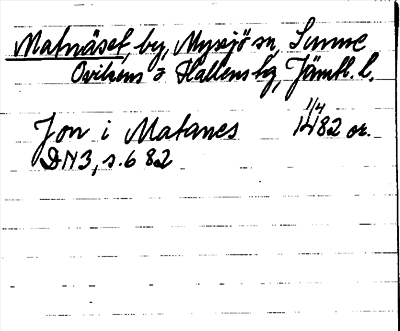 Matnäset, by, Myssjö sn, Sunne
Oviken o Hallens tg, Jämtl. l.
Jon i Matanes 1/4 1482 or.
DN3, s. 682